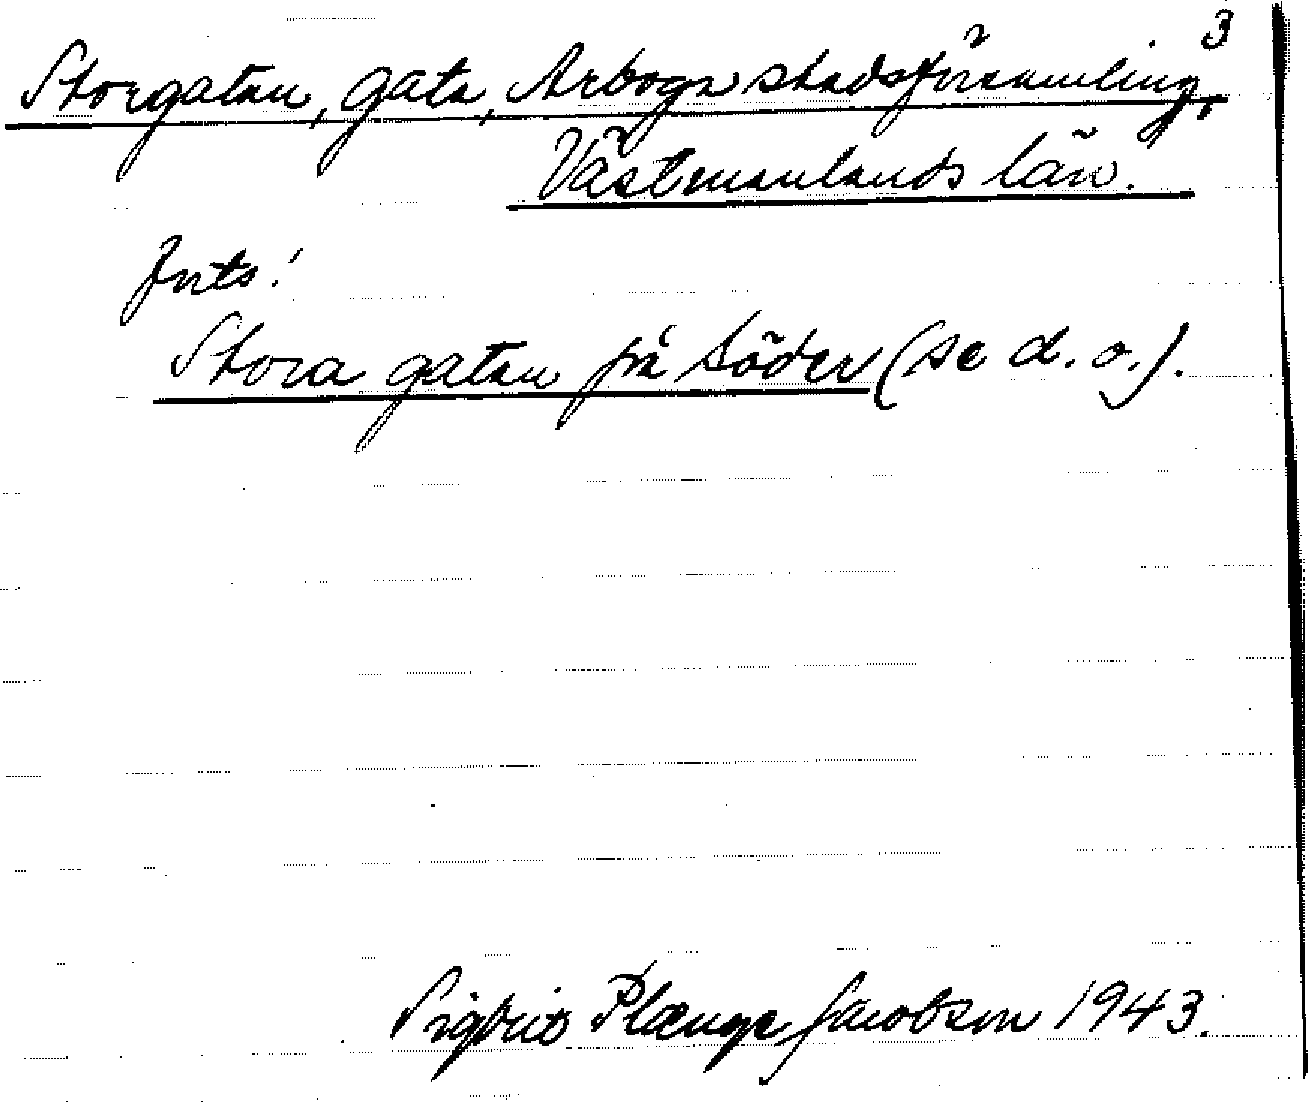 3
Storgatan, gata, Arboga stadsförsamling,
Västmanlands län.
Jnts!
Stora gatan på Söder (se d. o.).
Sigbrit Plænge Jacobson 1943.